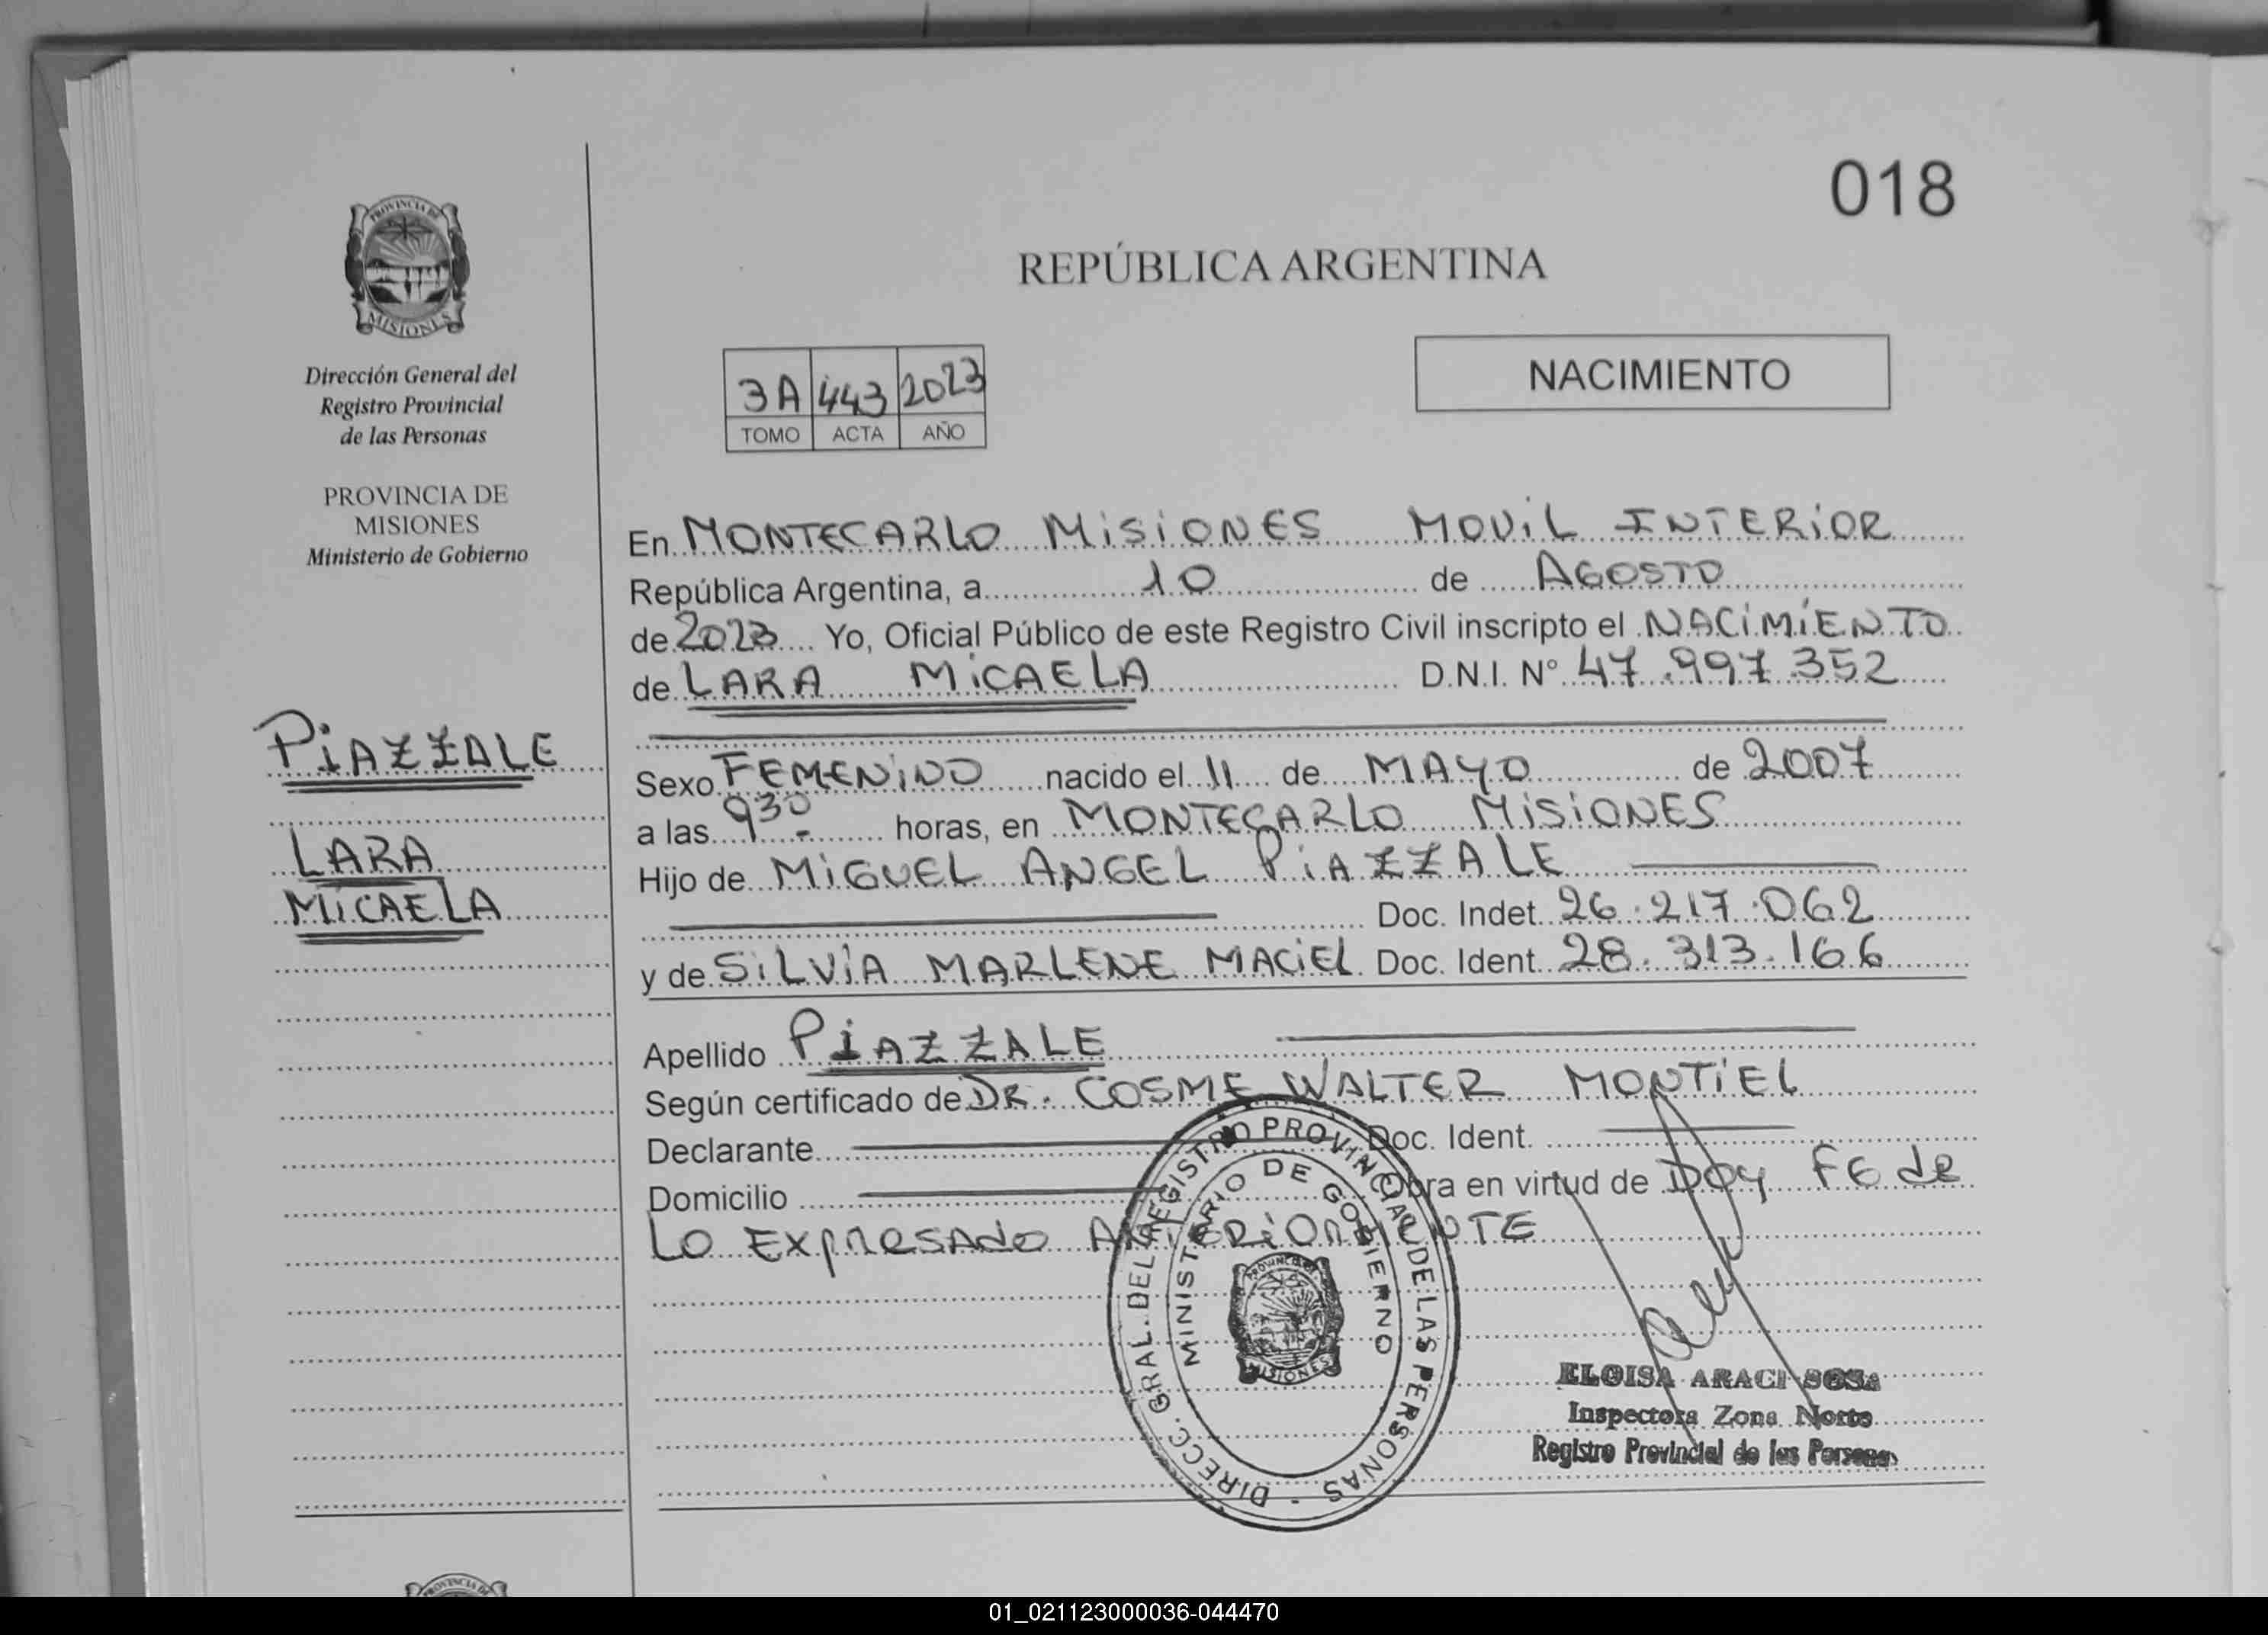 018
PROVINCIA DE
MISIONES
Dirección General del
Registro Provincial
de las Personas
PROVINCIA DE
MISIONES
Ministerio de Gobierno
PIAZZALE
LARA
MICAELA
REPÚBLICA ARGENTINA
NACIMIENTO
3A 443 2023
TOMO ACTA AÑO
En MONTECARLO MISIONES MOVIL INTERIOR
República Argentina, a 10 de AGOSTO
de 2023 Yo, Oficial Público de este Registro Civil inscripto el NACIMIENTO
de LARA MICAELA D.N.I. Nº 47.997.352
Sexo FEMENINO nacido el 11 de MAYO de 2007
a las 9 30 horas, en MONTECARLO MISIONES
Hijo de MIGUEL ANGEL PIAZZALE
Doc. Indet. 26.217.062
y de SILVIA MARLENE MACIEL Doc. Ident. 28.313.166
Apellido PIAZZALE
Según certificado de DR. COSME WALTER MONTIEL
Declarante Doc. Ident.
Domicilio Obra en virtud de DOY FE de
LO EXPRESADO ANTERIORMENTE
DIRECC. GRAL. DEL REGISTRO PROVINCIAL DE LAS PERSONAS -
MINISTERIO DE GOBIERNO
PROVINCIA DE
MISIONES
ELOISA ARACI SOSA
Inspectora Zona Norte
Registro Provincial de las Personas
PROVINCIA DE
01_021123000036-044470